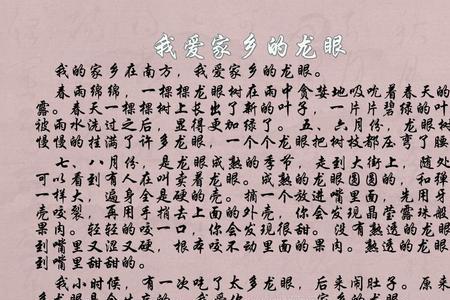 我爱家乡的龙眼
我的家乡在南方，我爱家乡的龙眼。
春雨绵绵，一棵棵龙眼树在雨中贪婪地吸吮着春天的
露。春天一棵棵树上长出了新的叶子，一片片碧绿的叶
被雨水洗过之后，显得更加绿了。五、六月份，龙眼树
慢慢的挂满了许多龙眼，一个个龙眼把树枝都压弯了腰
七、八月份，是龙眼成熟的季节，走到大街上，随处
可以看到有人在叫卖着龙眼。成熟的龙眼圆圆的，和弹
一样大，遍身全是硬的壳。摘一个放进嘴里面，先用牙
壳咬裂，再用手捎去上面的外壳，你会发现晶莹露珠般
果肉。轻轻的咬一口，你会发现很甜。没有熟透的龙眼
到嘴里又涩又硬，根本咬不动里面的果肉。熟透的龙眼
到嘴里甜甜的。
我小时候，有一次吃了太多龙眼，后来闹肚子。原来